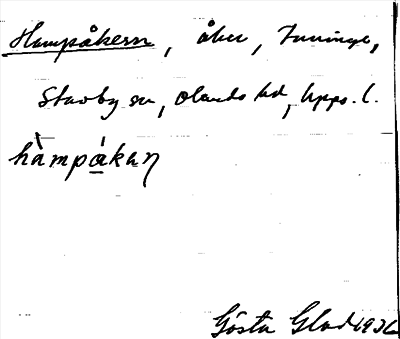 Hampåkern, åker, Tuninge,
Stavby sn, Olands hd, Upps. l.
hàmpákaṇ
Gösta Glad 1936